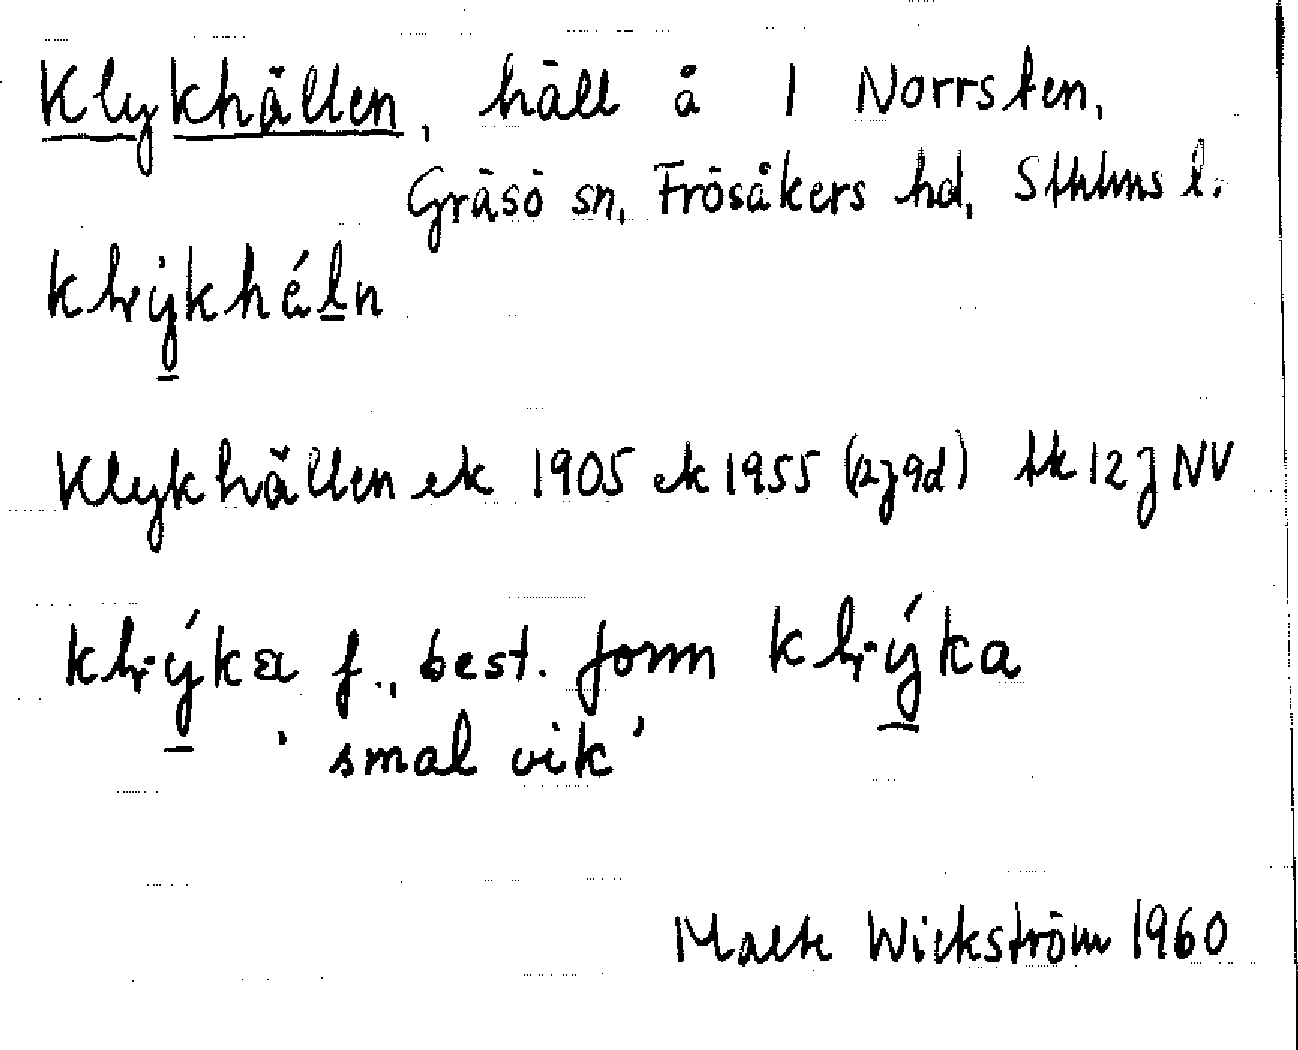 Klykhällen, häll å 1 Norrsten,
Gräsö sn, Frösåkers hd, Sthlms l.
klẏkhéln
Klykhällen ek 1905 ek 1955 (12j9d) tk 12j NV
klýka f., best. form klýka
'smal vik'
Wickström 1960